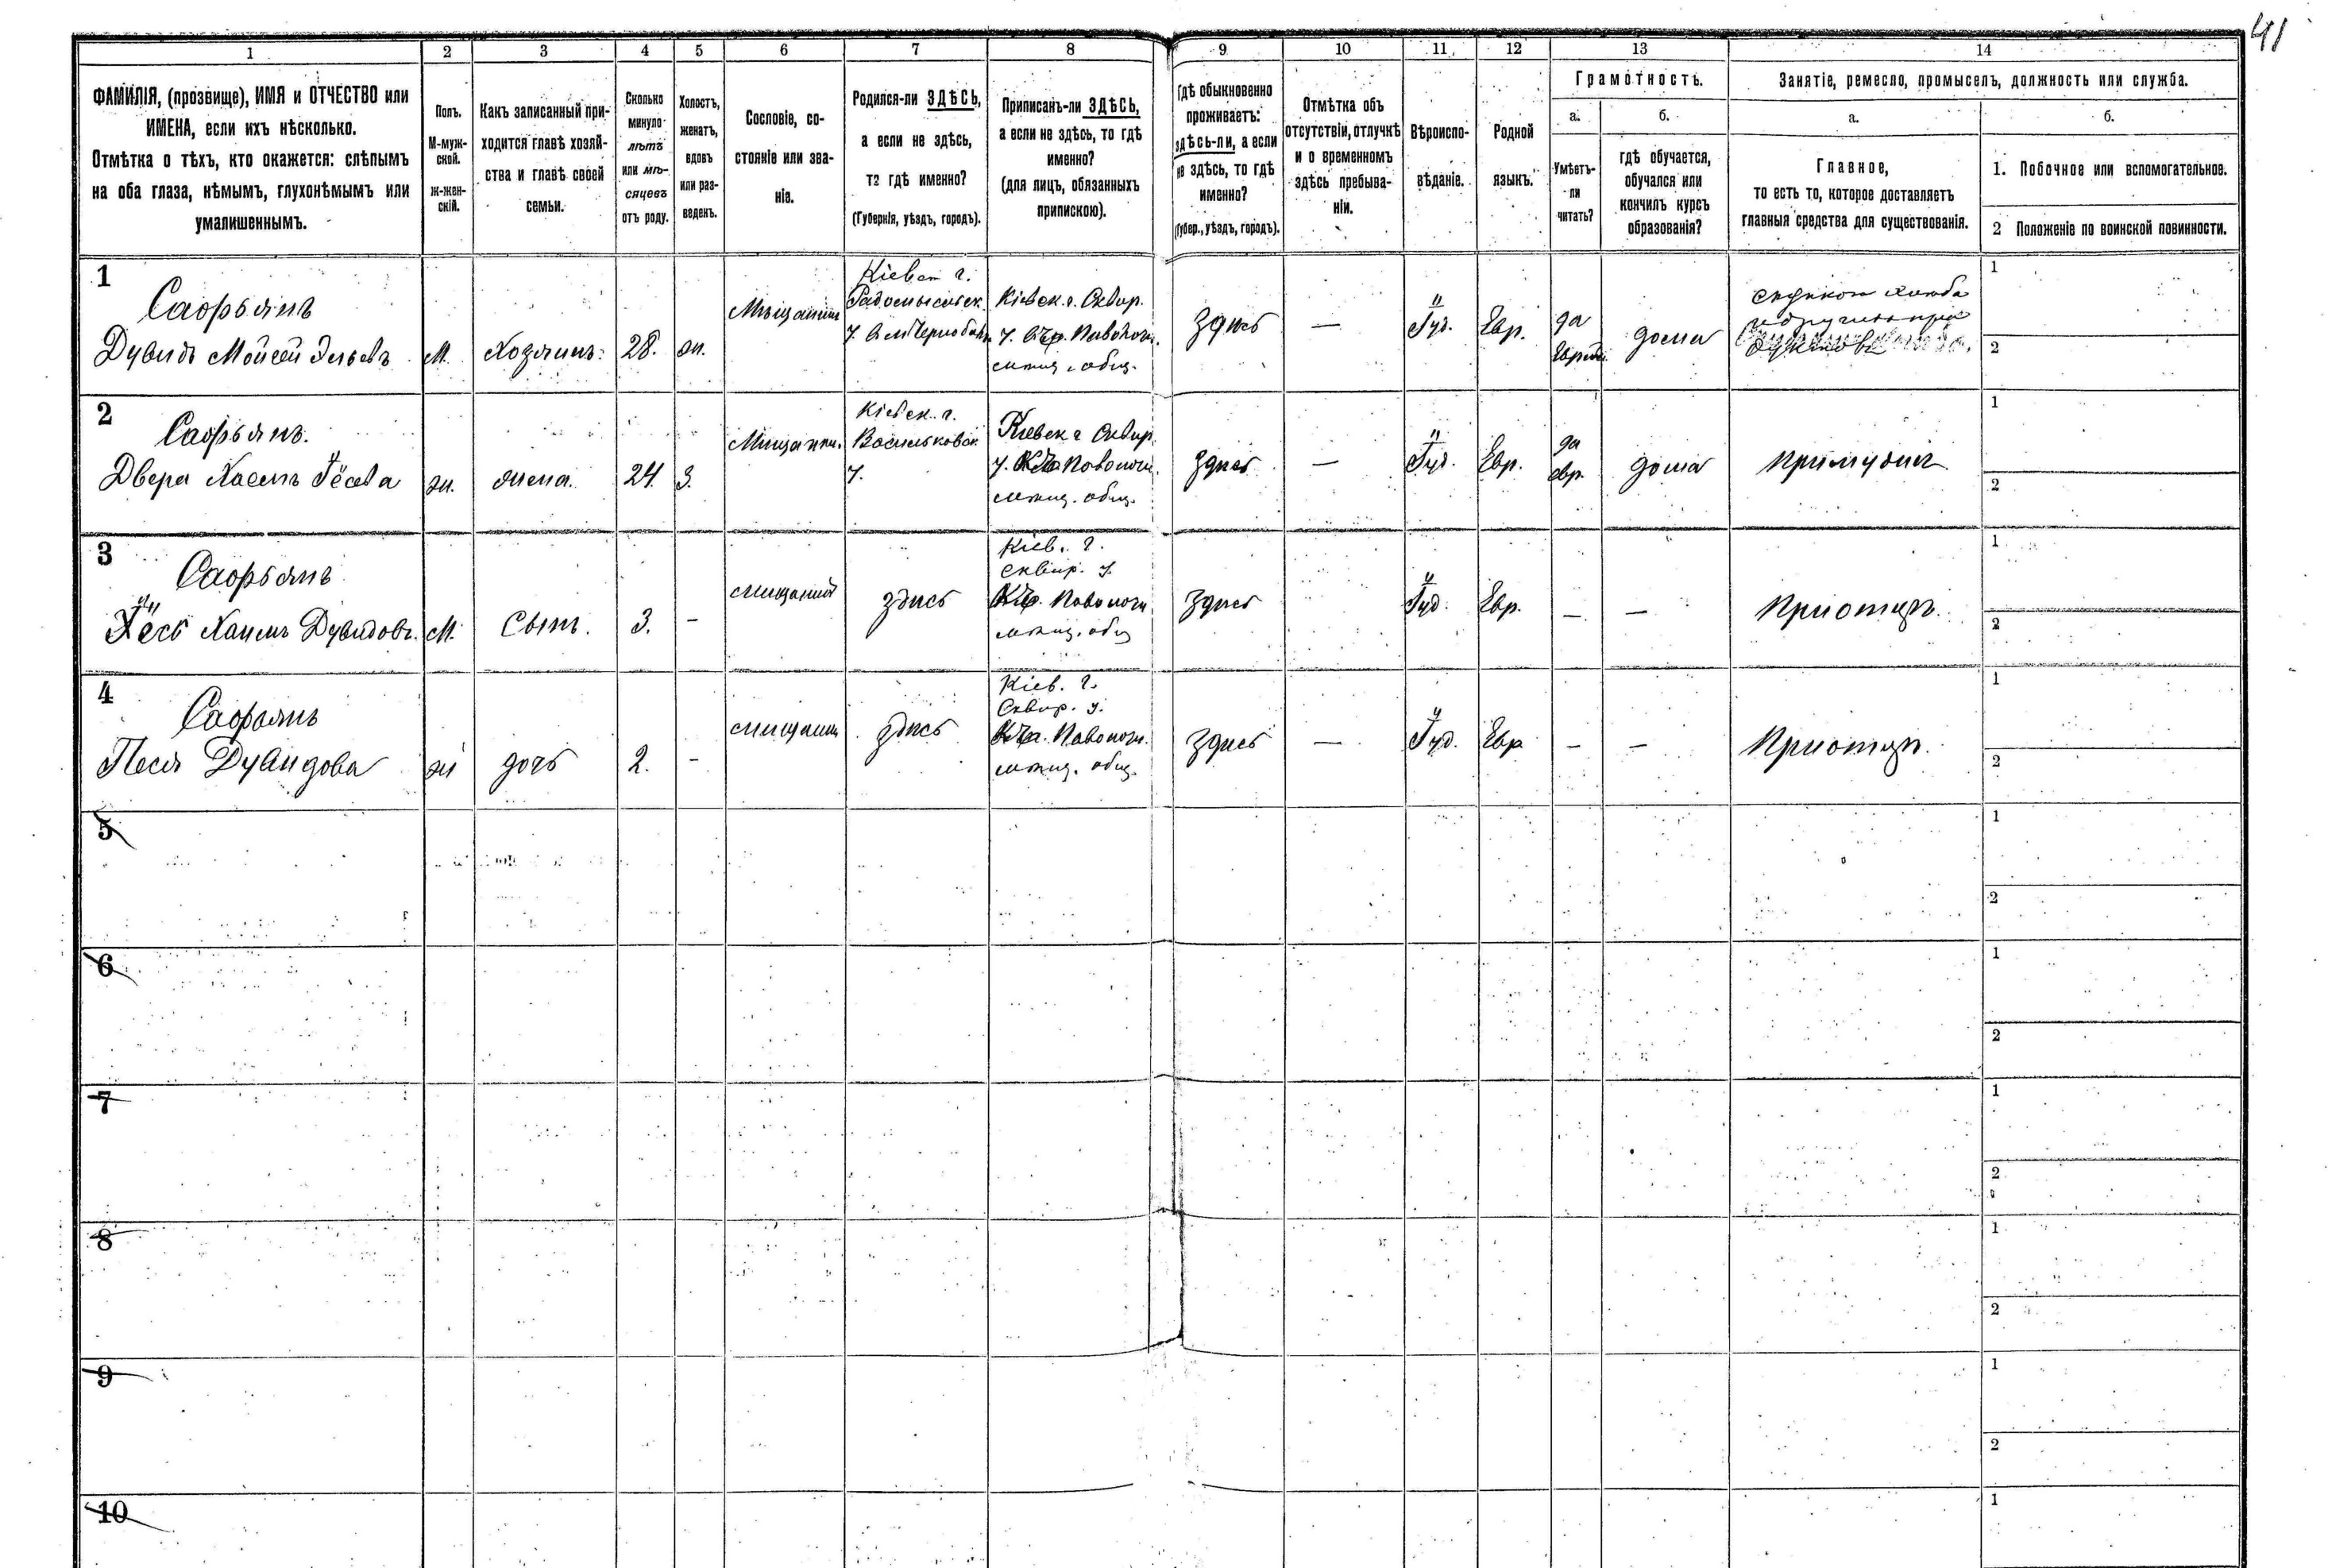 41
1 2 3 4 5 6 7 8 9 10 11 12 13 14
ФАМИЛІЯ, (прозвище), ИМЯ и ОТЧЕСТВО или
ИМЕНА, если ихъ нѣсколько.
Отмѣтка о тѣхъ, кто окажется: слѣпымъ
на оба глаза, нѣмымъ, глухонѣмымъ или
умалишеннымъ.
Полъ.
М-муж-
ской.
ж-жен-
скій.
Какъ записанный при-
ходится главѣ хозяй-
ства и главѣ своей
семьи.
Сколько
минуло
лѣтъ
или мѣ-
сяцевъ
отъ роду.
Холостъ,
женатъ,
вдовъ
или раз-
веденъ.
Сословіе, со-
стояніе или зва-
ніе.
Родился-ли ЗДѢСЬ,
а если не здѣсь,
то гдѣ именно?
(Губернія, уѣздъ, городъ).
Приписанъ-ли ЗДѢСЬ,
а если не здѣсь, то гдѣ
именно?
(для лицъ, обязанныхъ
припискою).
Гдѣ обыкновенно
проживаетъ:
здѣсь-ли, а если
не здѣсь, то гдѣ
именно?
(Губер., уѣздъ, городъ).
Отмѣтка объ
отсутствіи, отлучкѣ
и о временномъ
здѣсь пребыва-
ніи.
Вѣроиспо-
вѣданіе.
Родной
языкъ.
Грамотность.
а.
Умѣетъ-
ли
читать?
б.
гдѣ обучается,
обучался или
кончилъ курсъ
образованія?
Занятіе, ремесло, промыселъ, должность или служба.
а.
Главное,
то есть то, которое доставляетъ
главныя средства для существованія.
б.
1. Побочное или вспомогательное.
2 Положеніе по воинской повинности.
1
Сафьянъ
Дувидъ Мойсей
М.
Хозяинъ.
28.
ж.
Мѣщанинъ
Кіевск г.
Радомысльск.
у.
Кіевск. г. Сквир.
у. Паволоч.
мѣщ. общ.
здѣсь
—
Іуд.
Евр.
да
дома
1
2
2
Сафьянъ.
Двера
ж.
жена.
24.
З.
Мѣщанка.
Кіевск. г.
Васильковск
у.
Кіевск г Сквир.
у. Паволоч.
мѣщ. общ.
здѣсь
—
Іуд.
Евр.
да
евр.
дома
При мужѣ
1
2
3
Сафьянъ
Хаимъ Дувидовъ.
М.
Сынъ.
3.
-
мѣщанинъ
здѣсь
Кіев. г.
сквир. у.
Паволоч.
мѣщ. общ
здѣсь
Іуд.
Евр.
—
—
При отцѣ.
1
2
4
Сафьянъ
Песя Дувидова
ж
дочь
2.
-
здѣсь
Кіев. г.
Сквир. у.
Паволоч.
мѣщ. общ.
здѣсь
—
Іуд.
Евр
—
—
При отцѣ.
1
2
5
1
2
6
1
2
7
1
2
8
1
2
9
1
2
10
1